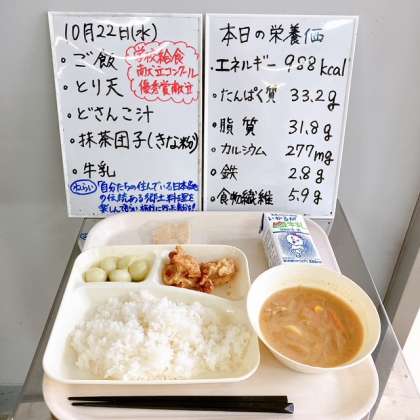 10月22日(水)
・ご飯
・とり天
・どさんこ汁
・抹茶団子(きな粉)
・牛乳
学校給食
献立コンクール
優秀賞献立
ねらい
「自分たちの住んでいる日本各地
の伝統ある郷土料理を
本日の栄養価
・エネルギー 988kcal
・たんぱく質 33.2g
・脂質 31.8g
・カルシウム 277mg
・鉄 2.8g
・食物繊維 5.9g